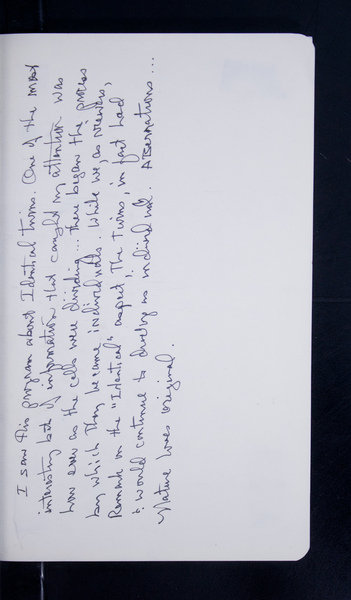 I saw this program about Identical twins. One of the most
interesting bit of information that caught my attention was
how even as the cells were dividing... there began the process
by which they became individuals. While we, as viewers,
Remark on the "Identical" aspect, The twins, in fact had
& would continue to develop as individual. Aberrations...
Nature loves original.